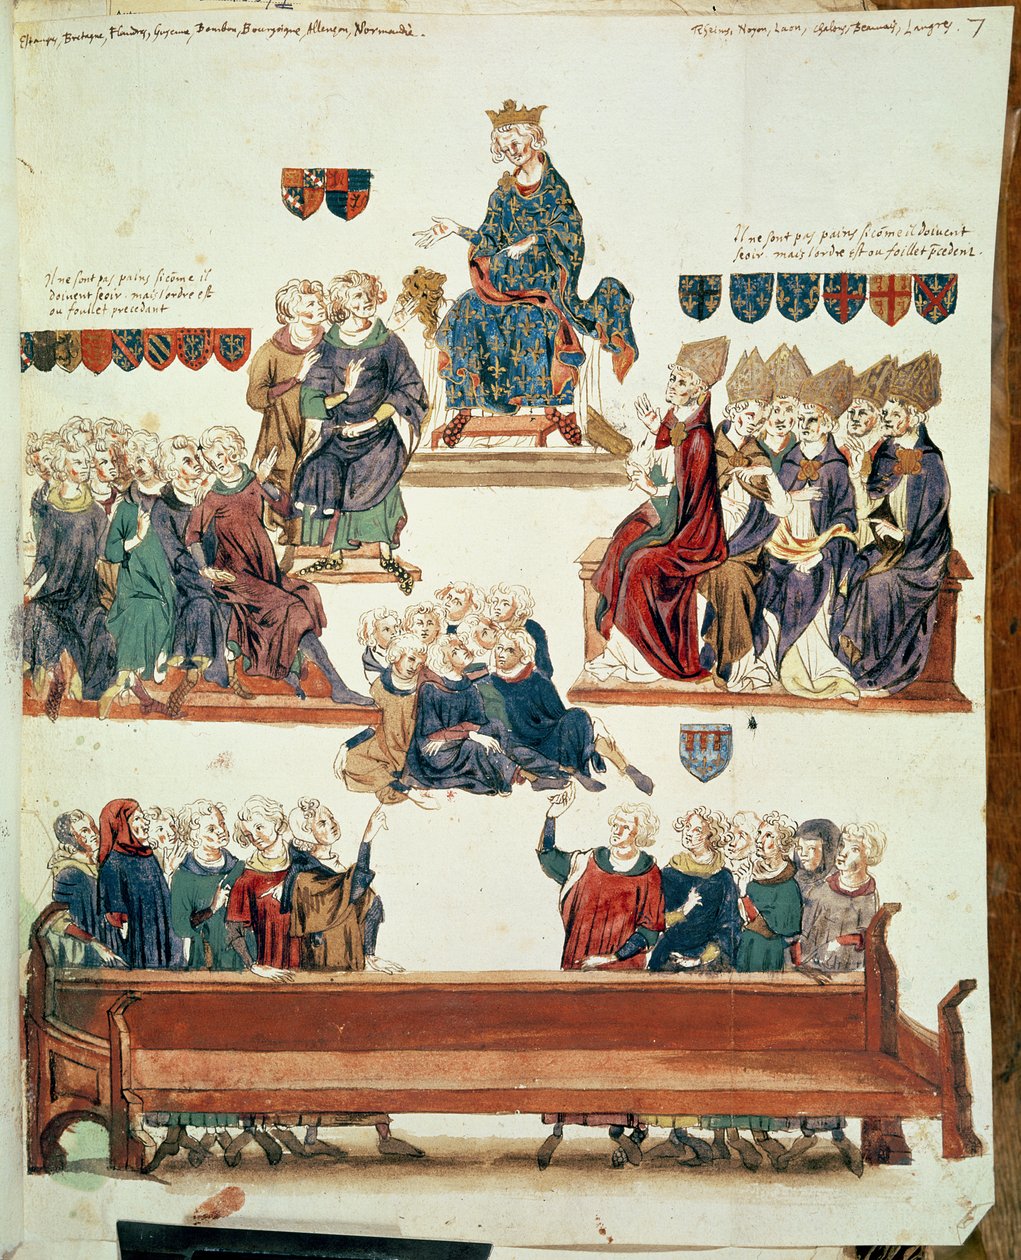 Estampes, Bretagne, Flandres, Guyenne, Bourbon, Bourgoigne, Allenson, Normandie.
Rheins, Noyon, Laon, Chalons, Beauvais, Langres. 7
Il ne sont pas pairs sicōme il doivent
seoir. mais lordre est ou foillet p̄cedent.
Il ne sont pas pairs sicōme il
doivent seoir. mais lordre est
ou foullet precedant